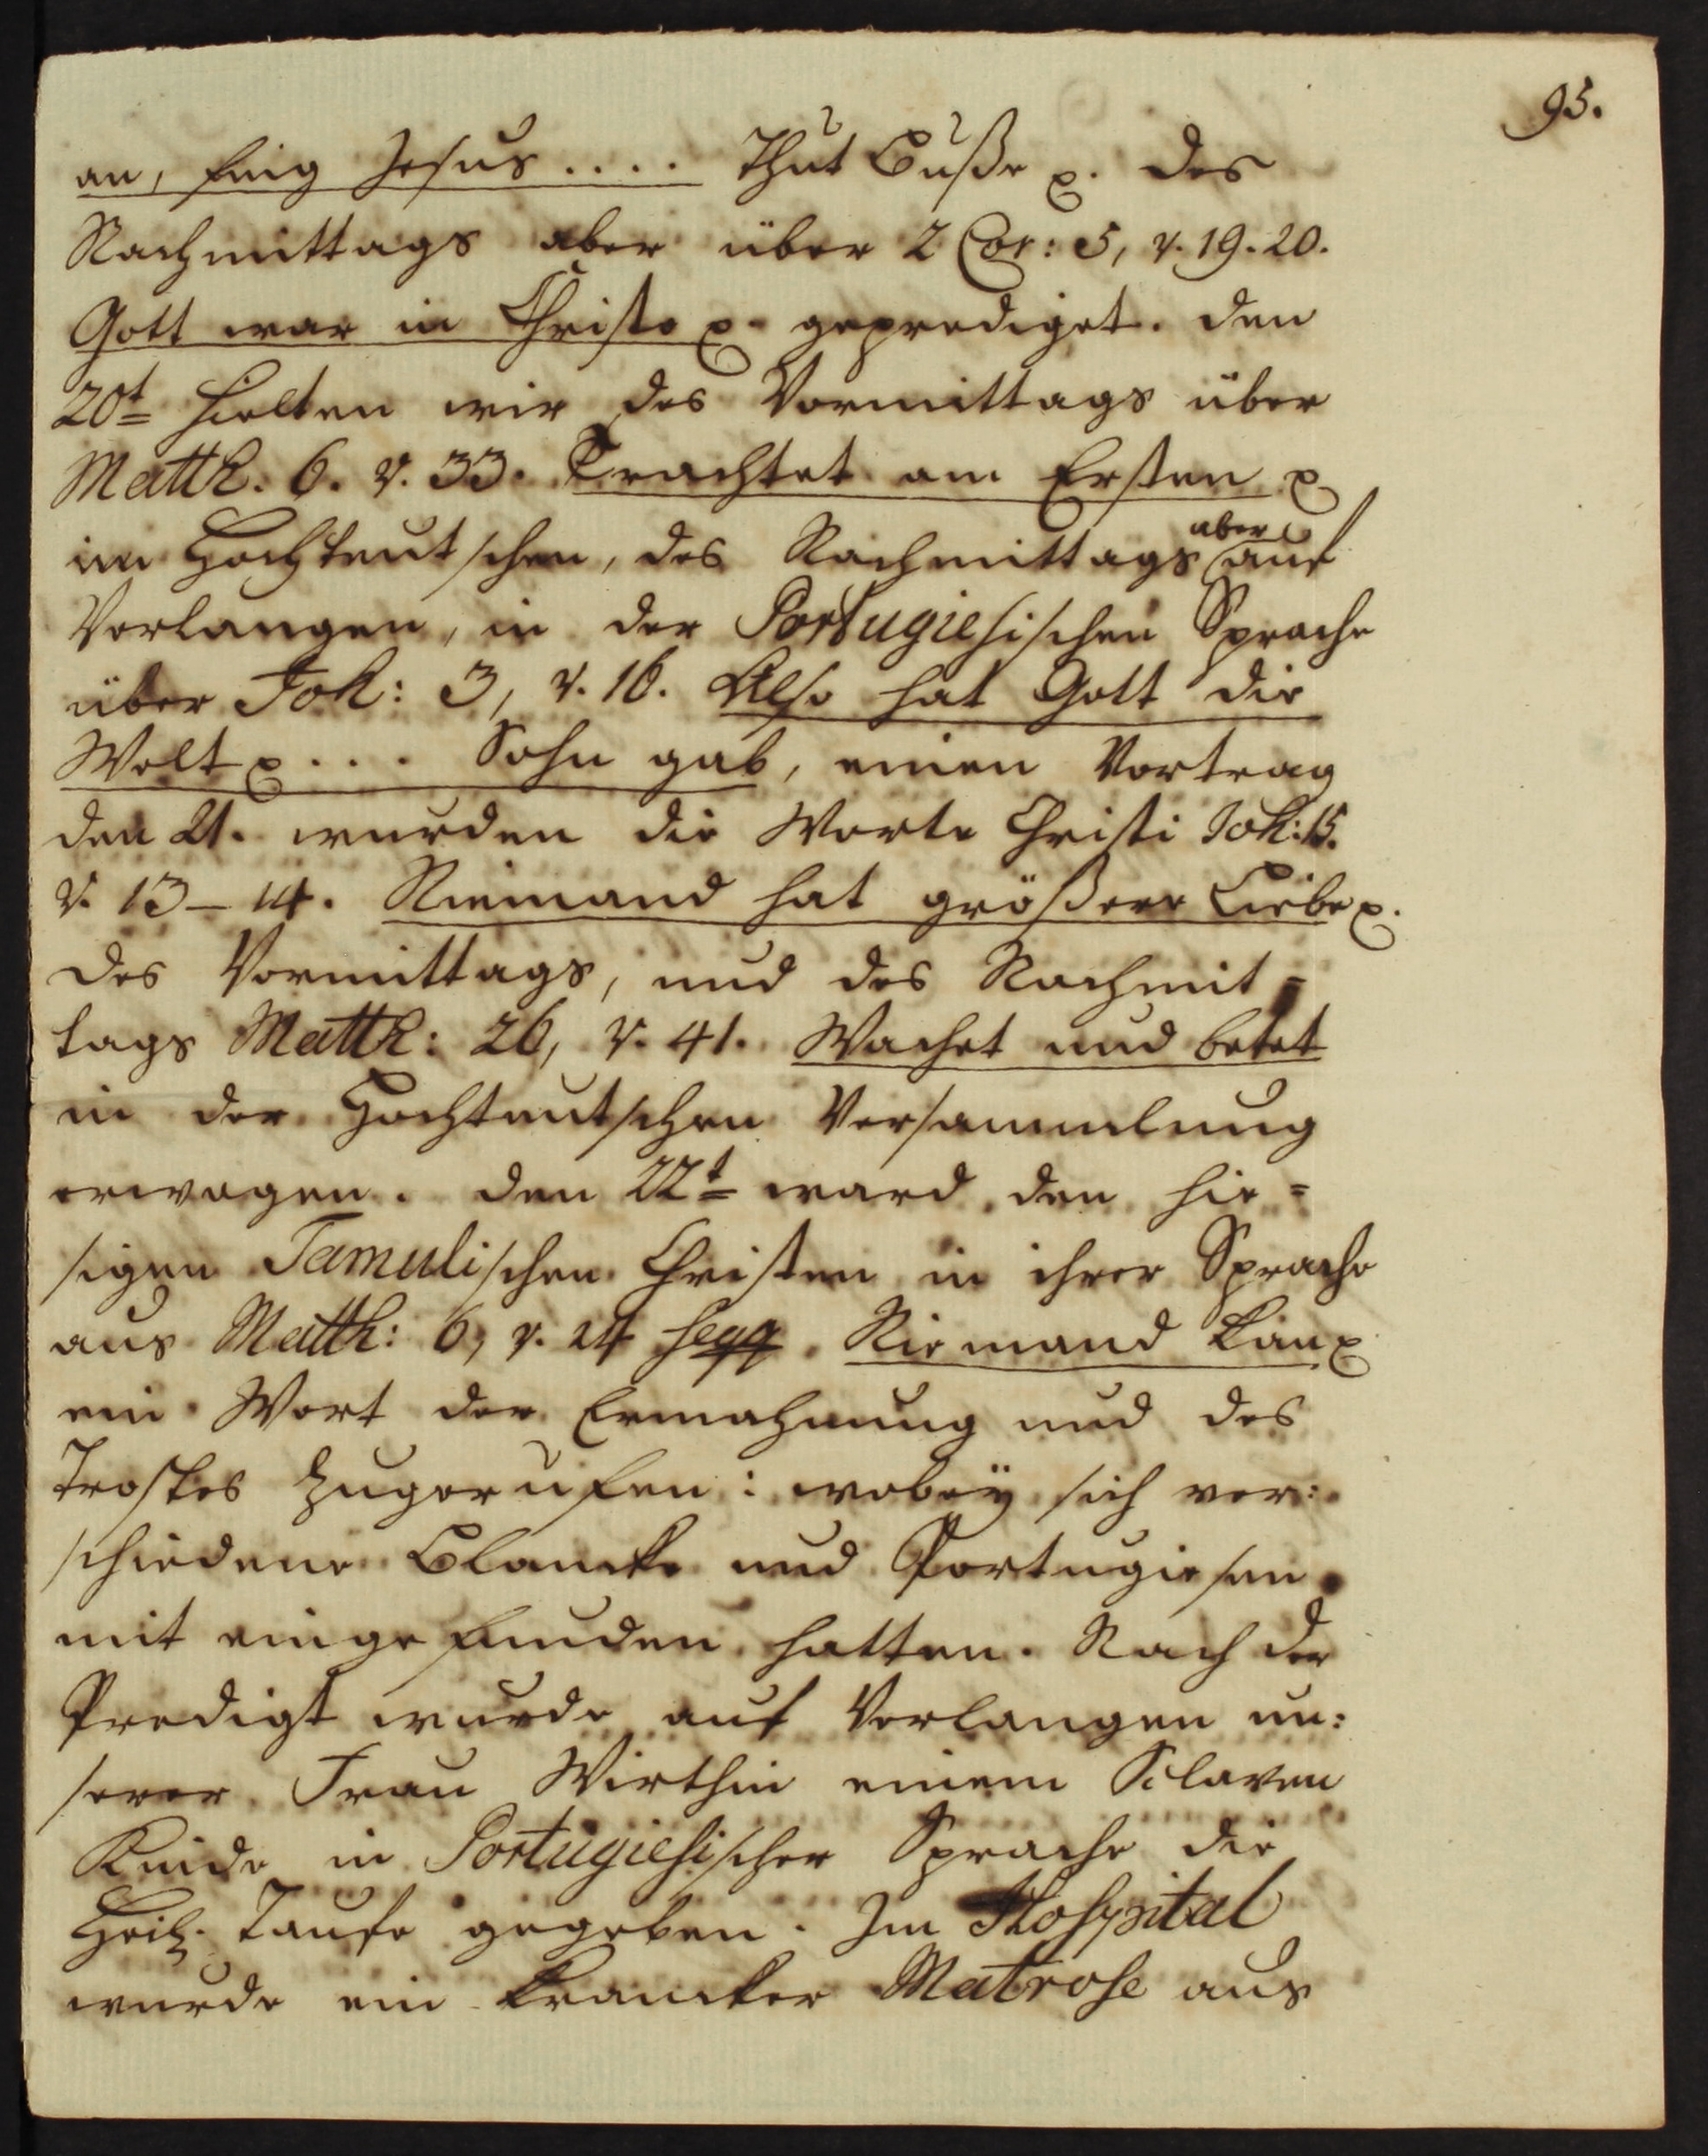 95.
an, fing Jesus .... Thut Buße ꝛc. des
Nachmittags aber über 2 Cor: 5, v. 19. 20.
Gott war in Christo ꝛc. geprediget. den
20t hielten wir des Vormittags über
Matth. 6. v. 33. Trachtet am Ersten ꝛc
im Hochteutschen, des Nachmittags aber auf
Verlangen, in der Portugiesischen Sprache
über Joh: 3, v. 16. Also hat Gott die
Welt ꝛc .... Sohn gab, einen Vortrag
den 21. wurden die Worte Christi Joh: 15.
v. 13 – 14. Niemand hat größere Liebe ꝛc.
des Vormittags, und des Nachmit=
tags Matth: 26, v. 41. Wachet und betet
in der Hochteutschen Versammlung
erwogen. den 22t ward den hie=
sigen Tamulischen Christen in ihrer Sprache
aus Matth: 6, v. 24 seqq. Niemand kan ꝛc
ein Wort der Ermahnung und des
Trostes zugerufen: wobey sich ver:
schiedene Blancke und Portugiesen
mit eingefunden hatten. Nach der
Predigt wurde auf Verlangen un:
serer Frau Wirthin einem Sclaven
Kinde in Portugiesischer Sprache die
Heil. Taufe gegeben. Im Hospital
wurde ein krancker Matrose aus